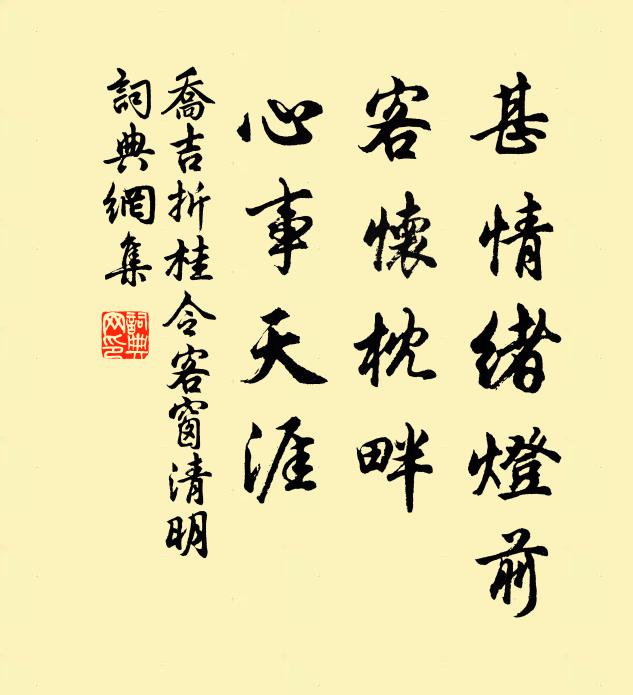 甚情緒燈前
客懷枕畔
心事天涯
喬吉折桂令客窗清明
詞典網集
詞典網印